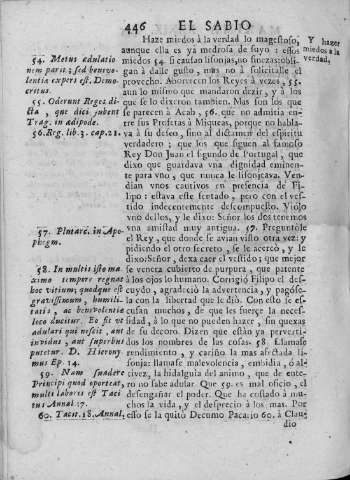 446 EL SABIO
Haze miedos à la verdad lo magestoso,
aunque ella es ya medrosa de suyo: essos
miedos 54. si causan lisonjas, no sino
gan à dalle gusto, mas no à solicitalle el
provecho. Aborrecen los Reyes à vezes, 55.
aun lo mismo que mandaron dezir, y à los
que se lo dixeron tambien. Mas son los que
se parecen à Acab, 56. que no admitia en-
tre sus Profetas à Miqueas, porque no habla-
va à su deseo, sino al dictamen del espiritu
verdadero; que los que siguen al famoso
Rey Don Juan el segundo de Portugal, que
dixo que guardava vna dignidad eminen-
te para vno, que nunca le lisonjeava. Ven-
dian vnos cautivos en presencia de Fi-
lipo: estava este sentado, pero con el vesti-
do indecentemente descompuesto. Violo
vno dellos, y le dixo: Señor los dos tenemos
vna amistad muy antigua. 57. Preguntóle
el Rey, que donde se avian visto otra vez: y
pidiendo el otro secreto, se le acercò, y le
dixo: Señor, dexa caer el vestido; que mejor
se venera cubierto de purpura, que patente
à los ojos lo humano. Corrigiò Filipo el des-
cuydo, agradeciò la advertencia, y pagòse-
la con la libertad que le diò. Con esto se es-
cusan muchos, de que les fuerce la neces-
sidad, à lo que no pueden hazer, sin quexas
de su decoro. Dizen que estàn ya perverti-
dos los nombres de las cosas. 58. Llamase
rendimiento, y cariño la mas afectada li-
sonja: llamase malevolencia, embidia, ò al-
tivez, la hidalguia del animo, que de ente-
ro no sabe adular. Que 59. es mal oficio, el
desengañar el poder. Que ha costado à mu-
chos la vida, y el desprecio à los mas. Por
esso se la quitò Decumo Pacario 60. à Clau
dio
Y hazer
miedos à la
verdad,
54. Metus adulatio
nem parit; sed benevo-
lentiæ expers est. Demo-
critus.
55. Oderunt Reges di-
cta, que dici jubent
Trag. in ædipode.
56. Reg. lib. 3. cap. 22.
57. Plutarc. in Apo-
phtegm.
58. In multis isto ma
ximo sempere regnat
hoc vitium; quodque est
gravissimum, humili-
tatis, ac benevolentiæ
loco ducitur. Eo fit ve
adulari qui nescit, aut
invidus, aut superbus
putetur. D. Hierony-
mus Ep. 14.
59. Nam suadere
Principi quod oporteat,
multi laboris est Taci
tus Annal. 17.
60. Tacit. 18. Annal.